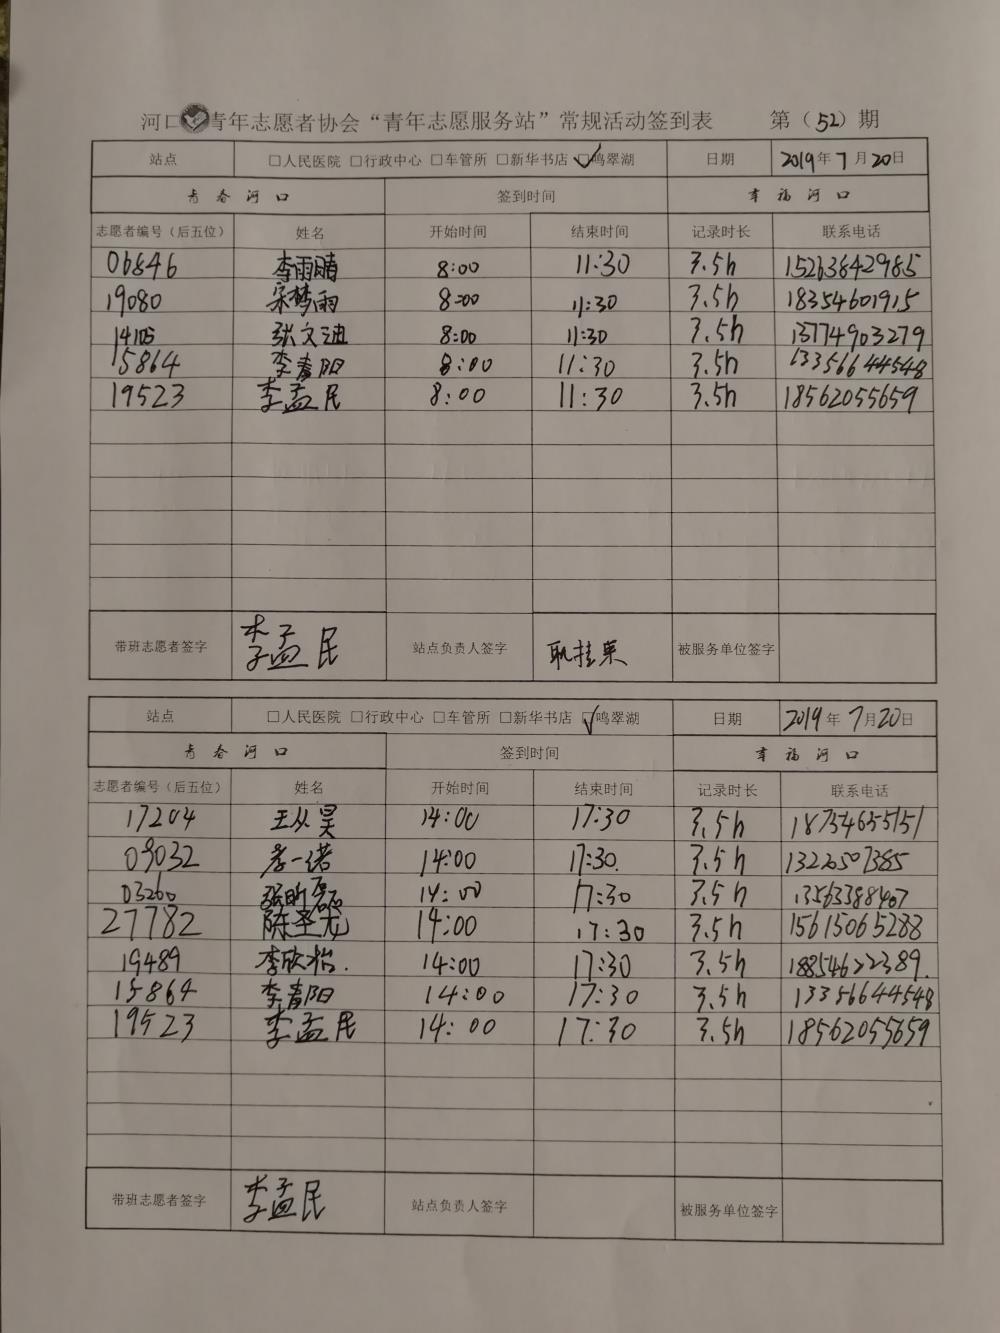 河口青年志愿者协会“青年志愿服务站”常规活动签到表 第（52）期
站点 □人民医院 □行政中心 □车管所 □新华书店 □鸣翠湖 日期 2019年7月20日
青春河口 签到时间 幸福河口
志愿者编号（后五位） 姓名 开始时间 结束时间 记录时长 联系电话
06846 李雨晴 8:00 11:30 3.5h 15263842985
19080 宋梦雨 8:00 11:30 3.5h 18354601915
14105 张文迪 8:00 11:30 3.5h 13774903279
15864 李春阳 8:00 11:30 3.5h 13356644548
19523 李孟民 8:00 11:30 3.5h 18562055659
带班志愿者签字 李孟民 站点负责人签字 耿桂 被服务单位签字
站点 □人民医院 □行政中心 □车管所 □新华书店 □鸣翠湖 日期 2019年7月20日
青春河口 签到时间 幸福河口
志愿者编号（后五位） 姓名 开始时间 结束时间 记录时长 联系电话
17204 王从昊 14:00 17:30 3.5h 18754655151
09032 李一诺 14:00 17:30. 3.5h 13220507385
03260 张昕磊 14:00 17:30 3.5h 13563388407
27782 陈圣龙 14:00 17:30 3.5h 15615065288
19489 李欣怡. 14:00 17:30 3.5h 18854622389.
15864 李春阳 14:00 17:30 3.5h 13356644548
19523 李孟民 14:00 17:30 3.5h 18562055659
带班志愿者签字 李孟民 站点负责人签字 被服务单位签字